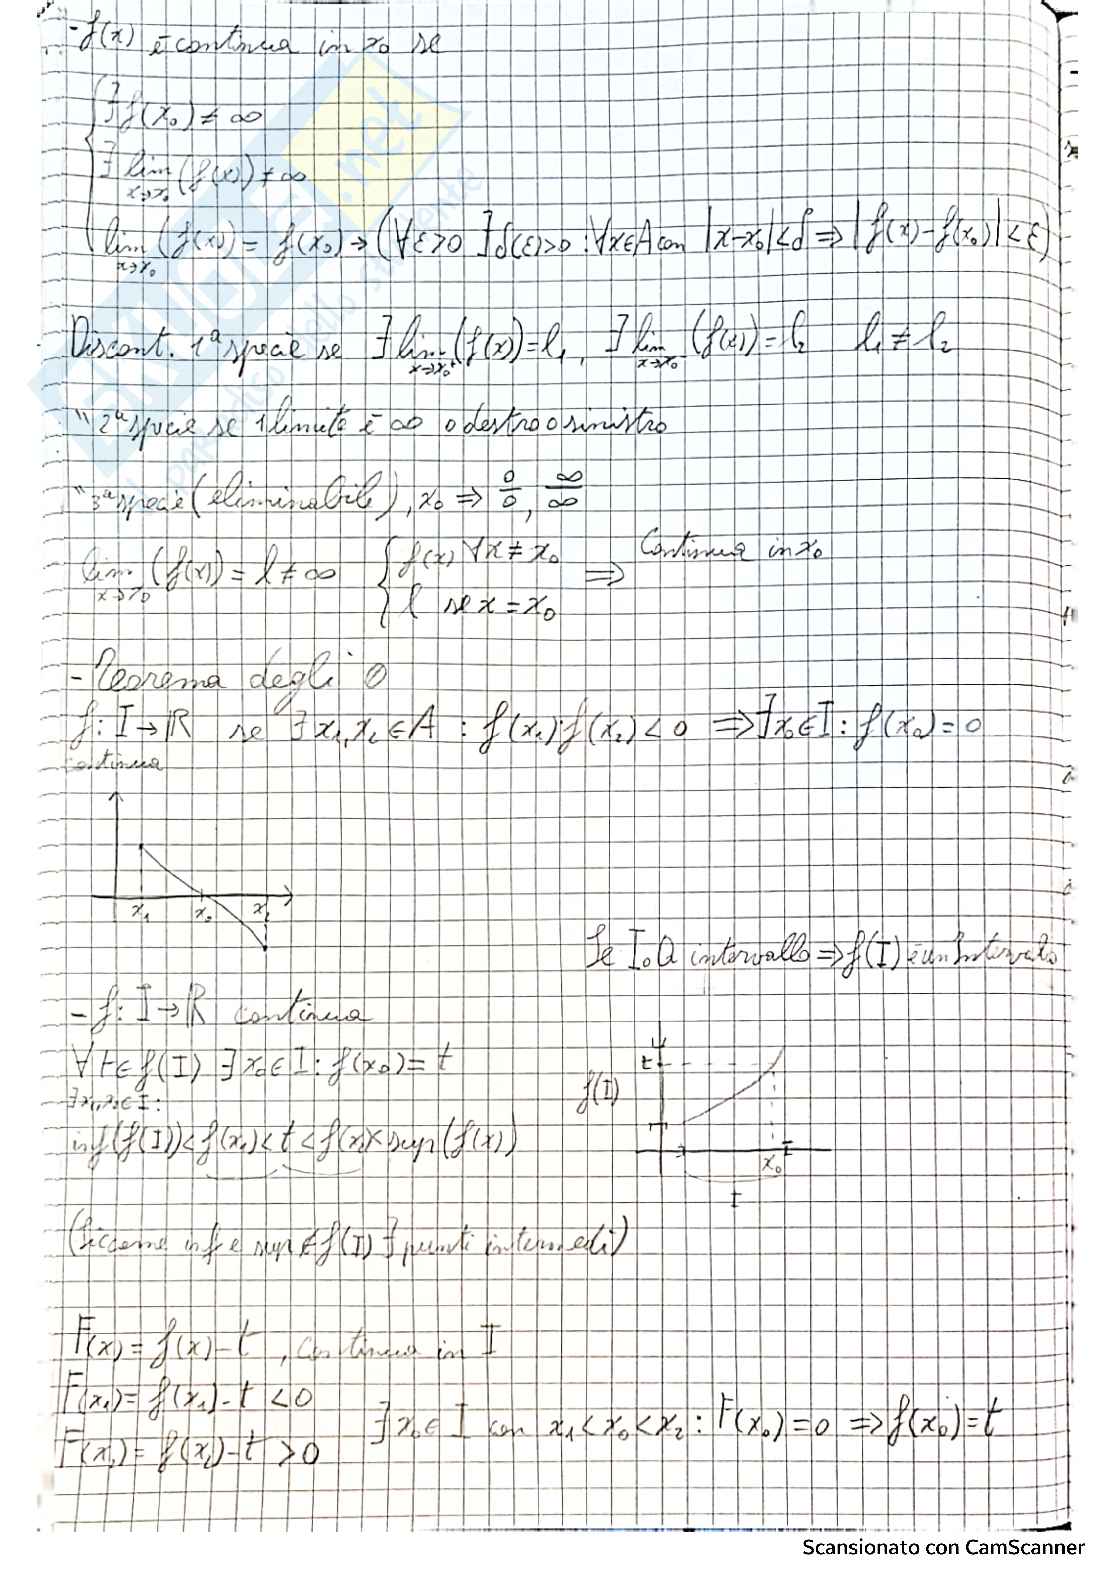 - f(x) è continua in x₀ se
∃ f(x₀) ≠ ∞
∃ lim x→x₀ (f(x)) ≠ ∞
lim x→x₀ (f(x)) = f(x₀) → (∀ε>0 ∃δ(ε)>0 : ∀x∈A con |x-x₀|<δ ⇒ |f(x)-f(x₀)|<ε)
Discont. 1ª specie se ∃ lim x→x₀⁺ (f(x)) = l₁, ∃ lim x→x₀⁻ (f(x)) = l₂ l₁ ≠ l₂
" 2ª specie se 1 limite è ∞ o destro o sinistro
" 3ª specie (eliminabile), x₀ ⇒ 0/0, ∞/∞
lim x→x₀ (f(x)) = l ≠ ∞ { f(x) ∀x ≠ x₀ ⇒ Continua in x₀
l se x = x₀
- Teorema degli 0
f: I → ℝ se ∃ x₁, x₂ ∈ A : f(x₁)·f(x₂) < 0 ⇒ ∃ x₀ ∈ I : f(x₀) = 0
continua
x₁ x₀ x₂
Se I è un intervallo ⇒ f(I) è un Intervallo
- f: I → ℝ continua
∀ t ∈ f(I) ∃ x₀ ∈ I : f(x₀) = t
∃ x₁, x₂ ∈ I :
inf(f(I)) < f(x₁) < t < f(x₂) < sup(f(x))
t
f(I)
x₀
I
(Siccome inf e sup ∉ f(I) ∃ punti intermedi)
F(x) = f(x) - t , continua in I
F(x₁) = f(x₁) - t < 0
F(x₂) = f(x₂) - t > 0
∃ x₀ ∈ I con x₁ < x₀ < x₂ : F(x₀) = 0 ⇒ f(x₀) = t
Scansionato con CamScanner